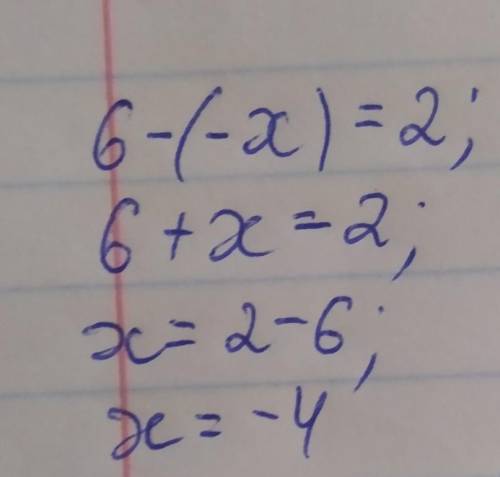 6-(-x)=2;
6+x=2;
x=2-6;
x=-4